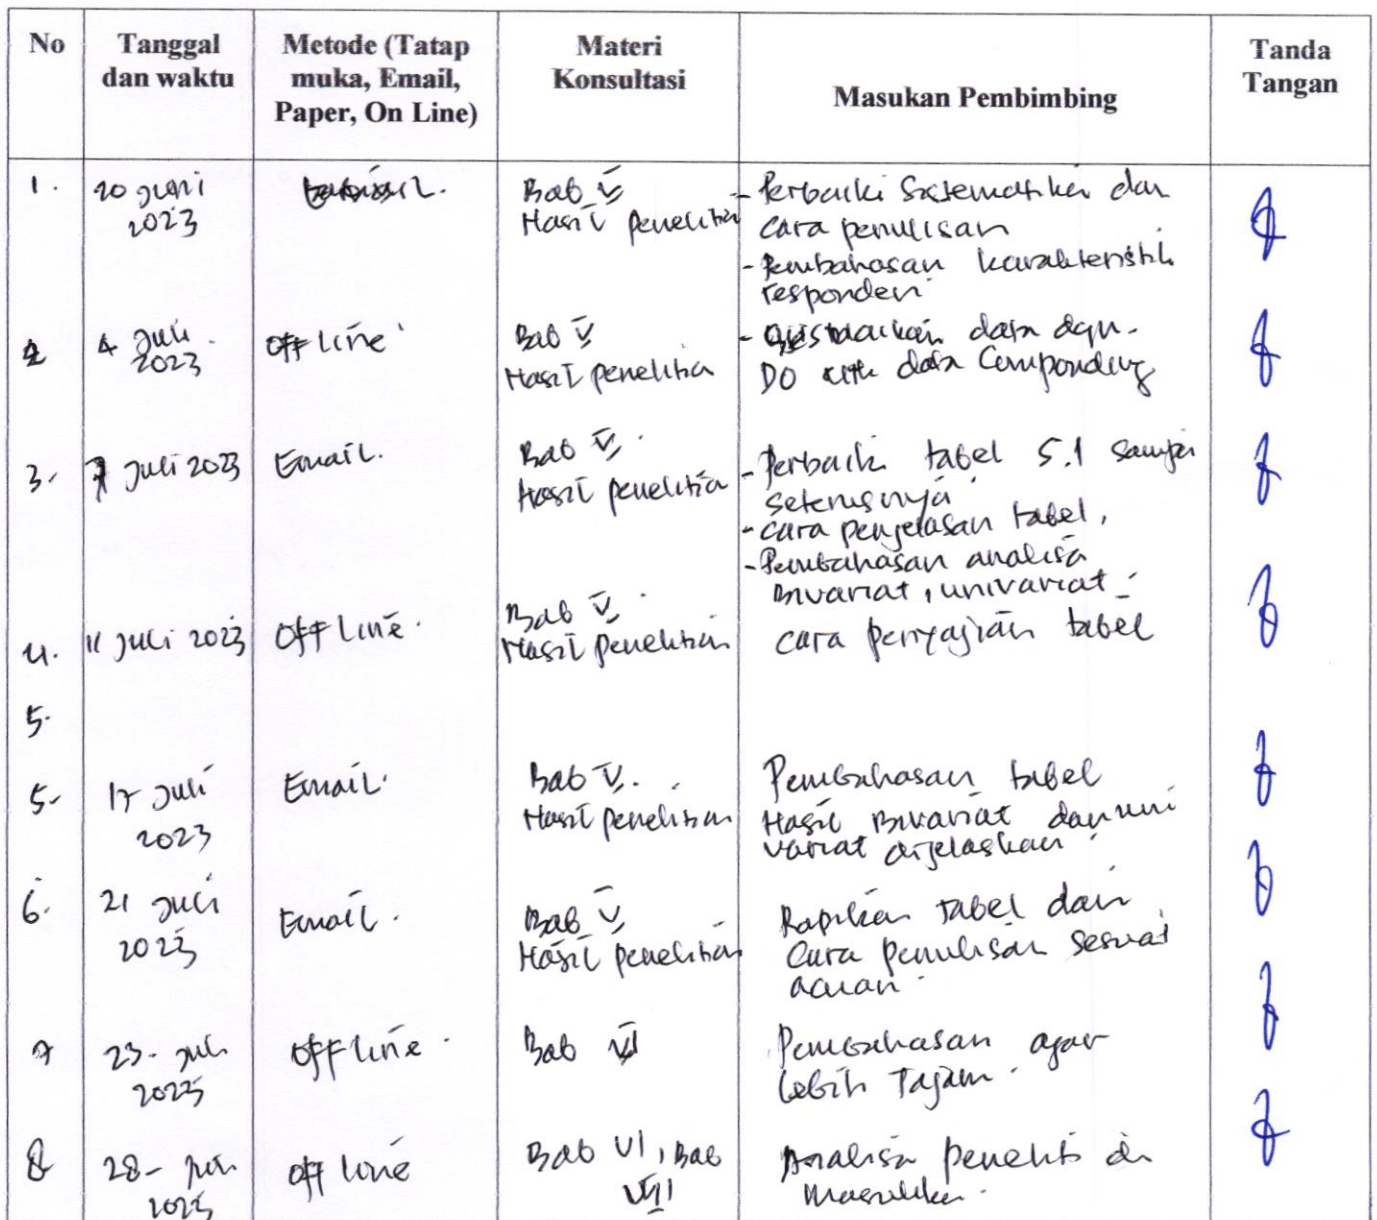 No
Tanggal
dan waktu
Metode (Tatap
muka, Email,
Paper, On Line)
Materi
Konsultasi
Masukan Pembimbing
Tanda
Tangan
1.
20 Juni
2023
Bab V
Hasil penelitian
- Perbaiki Sistematika dan
Cara penulisan
- Pembahasan karakteristik
responden
2
4 Juli
2023
Off line
Bab V
Hasil penelitian
data dgn.
DO data
3.
7 Juli 2023
Email.
Bab V.
Hasil penelitian
- Perbaiki tabel 5.1 sampai
seterusnya
- Cara penjelasan tabel,
- Pembahasan analisa
Bivariat, univariat
4.
11 Juli 2023
Off line.
Bab V.
Hasil penelitian
cara penyajian tabel
5.
5.
17 Juli
2023
Email.
Bab V.
Hasil penelitian
Pembahasan tabel
Hasil Bivariat dan uni
variat dijelaskan
6.
21 Juli
2023
Email.
Bab V
Hasil penelitian
Rapikan tabel dan
Cara penulisan sesuai
acuan.
7
23 - Juli
2023
Off line.
Bab VI
Pembahasan agar
lebih Tajam.
8
28 - Juli
2023
off line
Bab VI, Bab
VII
Analisa peneliti di